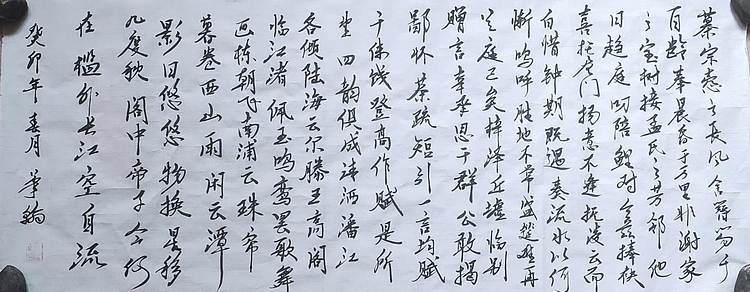 慕宗悫之长风舍簪笏于
百龄奉晨昏于万里非谢家
之宝树接孟氏之芳邻他
日趋庭叨陪鲤对今兹捧袂
喜托龙门杨意不逢抚凌云而
自惜钟期既遇奏流水以何
惭呜呼胜地不常盛筵难再
兰庭已矣梓泽丘墟临别
赠言幸承恩于群公敢竭
鄙怀恭疏短引一言均赋
于伟饯登高作赋是所
望四韵俱成请洒潘江
各倾陆海云尔滕王高阁
临江渚佩玉鸣鸾罢歌舞
画栋朝飞南浦云珠帘
暮卷西山雨闲云潭
影日悠悠物换星移
几度秋阁中帝子今何
在槛外长江空自流
癸卯年春月